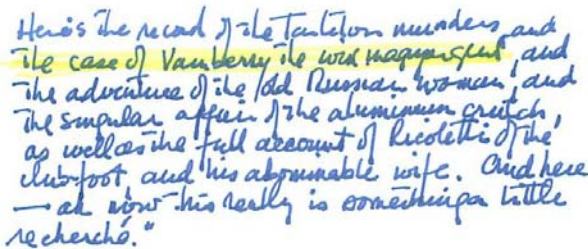 Here's the record of the Tarleton murders and
the case of Vamberry the wine merchant, and
the adventure of the old Russian woman, and
the singular affair of the aluminium crutch,
as well as the full account of Ricoletti of the
club-foot, and his abominable wife. And here
— ah now this really is something a little
recherché."